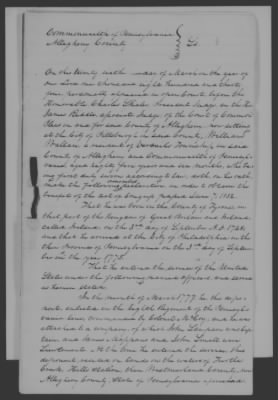 Commonwealth of Pennsylvania
Allegheny County } Ss.
On this twenty sixth day of March in the year of
our Lord one thousand eight hundred and thirty
four personally appeared in open Court before the
Honorable Charles Shaler President Judge and the Hon
James Riddle associate Judge of the Court of Common
Pleas in and for said County of Allegheny now sitting
at the City of Pittsburg in said County, William
Wallace a resident of Township in said
County of Allegheny and Commonwealth of Pennsyl
vania aged eighty five years and six months, who be
ing first duly sworn according to law, doth on his oath
make the following declaration in order to obtain the
benefit of the act of Congress passed June 7, 1832.
That he was born in the County of Tyrone in
that part of the Kingdom of Great Britain and Ireland
called Ireland on the 3rd day of September A.D. 1748
and that he arrived at the City of Philadelphia in the
then Province of Pennsylvania on the 3rd day of Septem
ber in the year 1773.
That he entered the service of the United
States under the following named officers and served
as herein stated.
In the month of March 1777 he this depo
nent enlisted in the Eighth Regiment of the Pennsylva
nia line commanded by Colonel McCoy, and he was
attached to a company of which John Simpson was Cap
tain and James and John Smith were
Lieutenants. At the time he entered the service this
deponent resided on lands on the waters of Turtle
Creek, Station, then Westmoreland County, now
Allegheny County, State of Pennsylvania